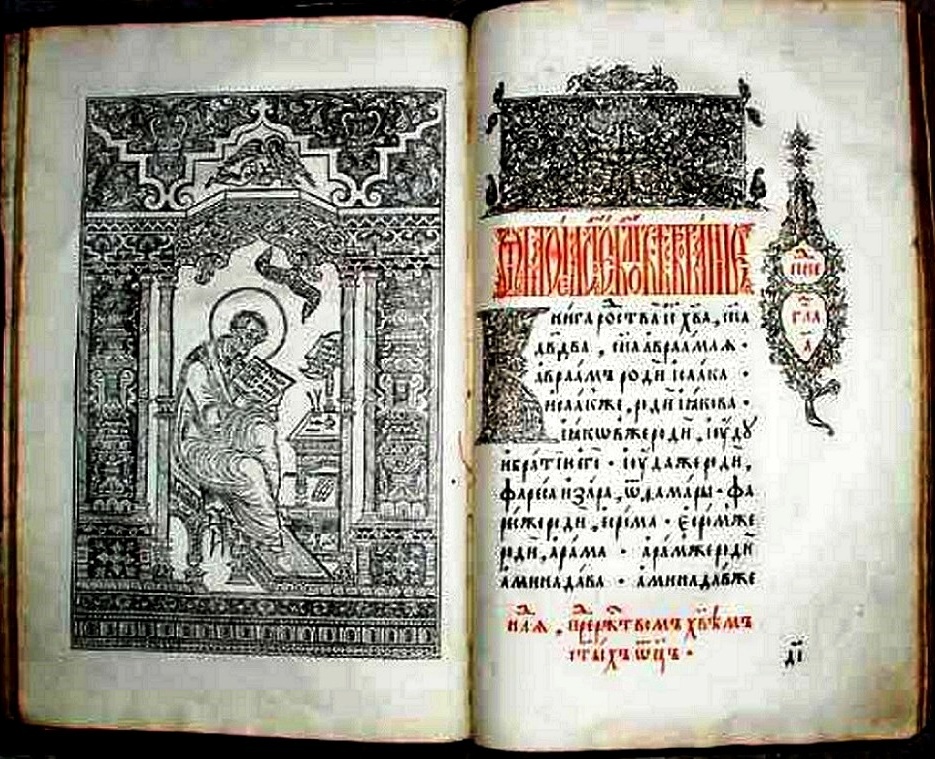 книга роства іс҃ хв҃а, сн҃а
двд҃ва, сн҃а авраамля ·
авраамъ роди ісаака ·
исаакже, роди іакова ·
іакѡвжероди, іоуду
ибратіюегѡ · іоудажероди,
фаресаизара, ѿѳамары · фа
ресжероди, есрома · есромже
роди, арама · арамжероди
аминадава · аминадавже
пред̾рожⷭ҇твомъ хв҃ѣмъ
ст҃ыхъ ѿц҃ъ ·
гла
а҃
д҃і